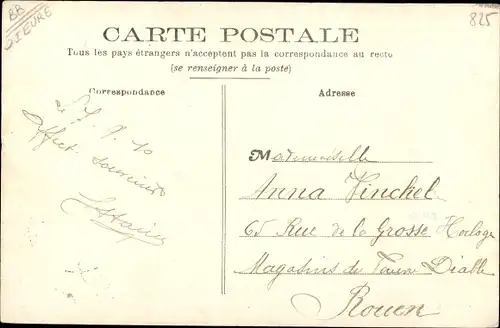 BB
DIEURE
825
CARTE POSTALE
Tous les pays étrangers n'acceptent pas la correspondance au recto
(se renseigner à la poste)
Correspondance
Adresse
10
affect. souvenirs
Mademoiselle
Anna Vinckel
65 Rue de la Grosse Horloge
Magasins du Pauvre Diable
Rouen